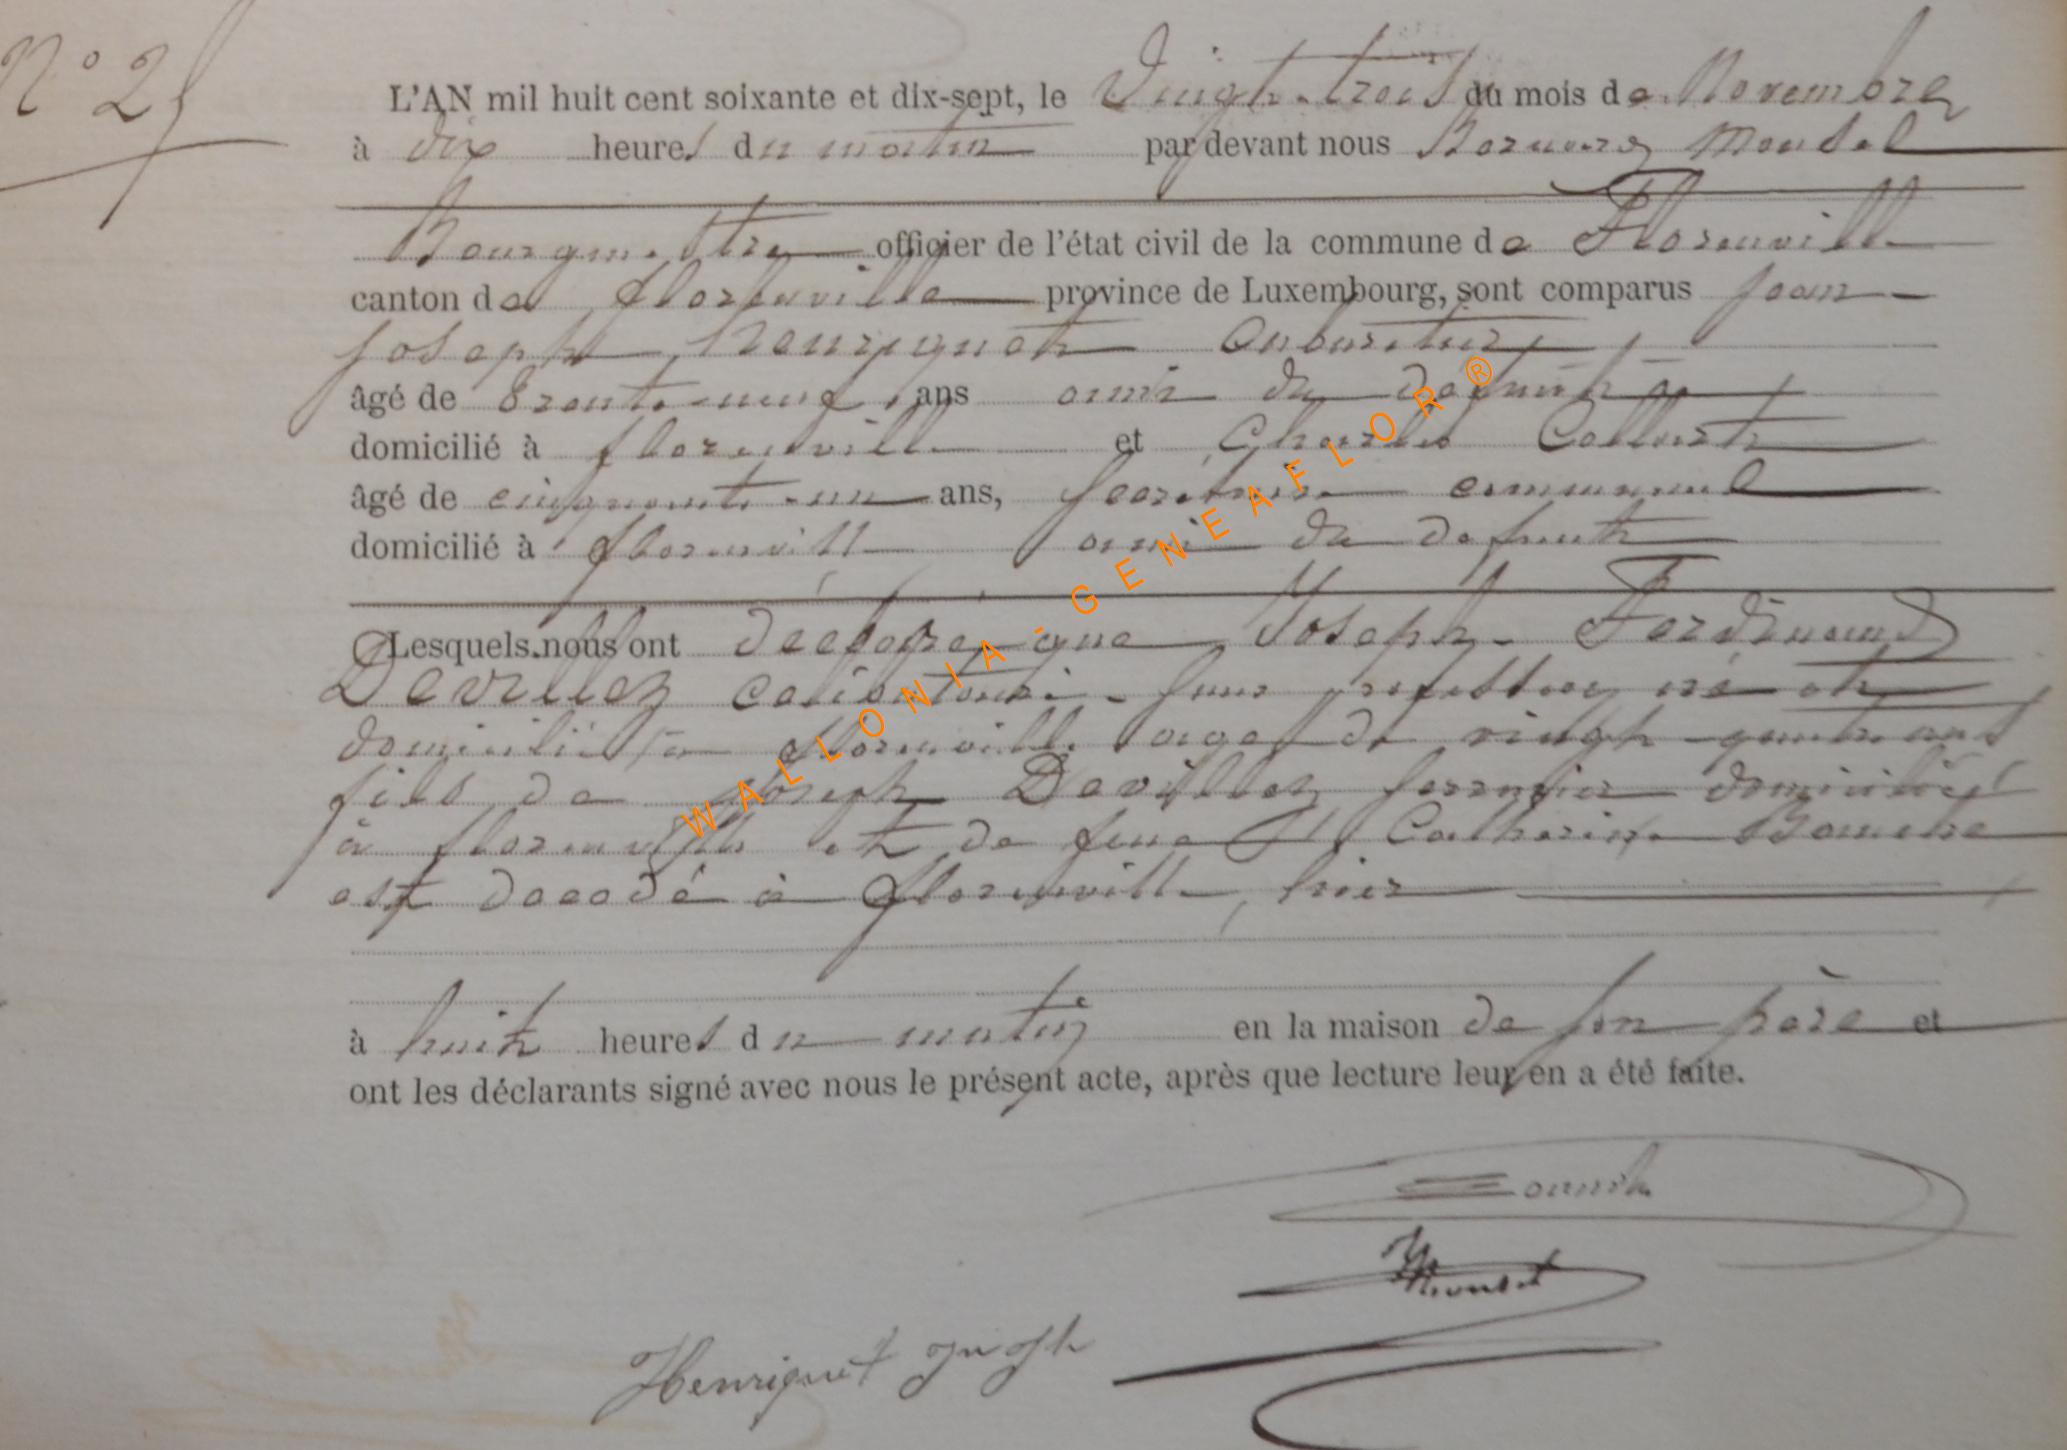 N° 25
L'AN mil huit cent soixante et dix-sept, le Vingt-trois du mois de Novembre
à dix heures du matin par devant nous Bernard Mousel
Bourgmestre officier de l'état civil de la commune de Florenville
canton de florenville province de Luxembourg, sont comparus Jean
Joseph Henriquet Cabaretier
âgé de Trente-neuf ans ami du défunt
domicilié à florenville et Charles Collnet
âgé de cinquante-un ans, secrétaire communal
domicilié à florenville ami du defunt
Lesquels nous ont déclaré que Joseph Ferdinand
Devillez celibataire sans profession né et
domicilié à florenville agé de vingt-quatre ans
fils de Joseph Devillez domicilié
à florenville et de feue Catherine
est decedé à florenville, hier
à huit heures du matin en la maison de son père et
ont les déclarants signé avec nous le présent acte, après que lecture leur en a été faite.
Mousel
Henriquet Joseph
WALLONIA - GENEAFLOR ®